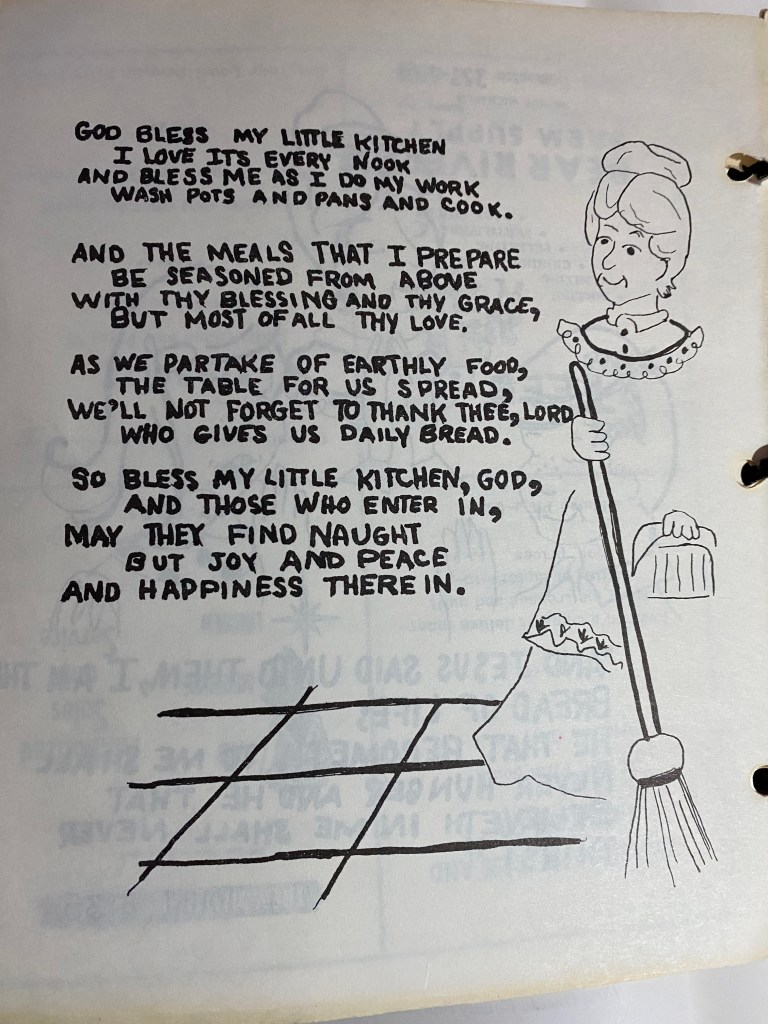 GOD BLESS MY LITTLE KITCHEN
I LOVE ITS EVERY NOOK
AND BLESS ME AS I DO MY WORK
WASH POTS AND PANS AND COOK.
AND THE MEALS THAT I PREPARE
BE SEASONED FROM ABOVE
WITH THY BLESSING AND THY GRACE,
BUT MOST OF ALL THY LOVE.
AS WE PARTAKE OF EARTHLY FOOD,
THE TABLE FOR US SPREAD,
WE'LL NOT FORGET TO THANK THEE, LORD
WHO GIVES US DAILY BREAD.
SO BLESS MY LITTLE KITCHEN, GOD,
AND THOSE WHO ENTER IN,
MAY THEY FIND NAUGHT
BUT JOY AND PEACE
AND HAPPINESS THERE IN.